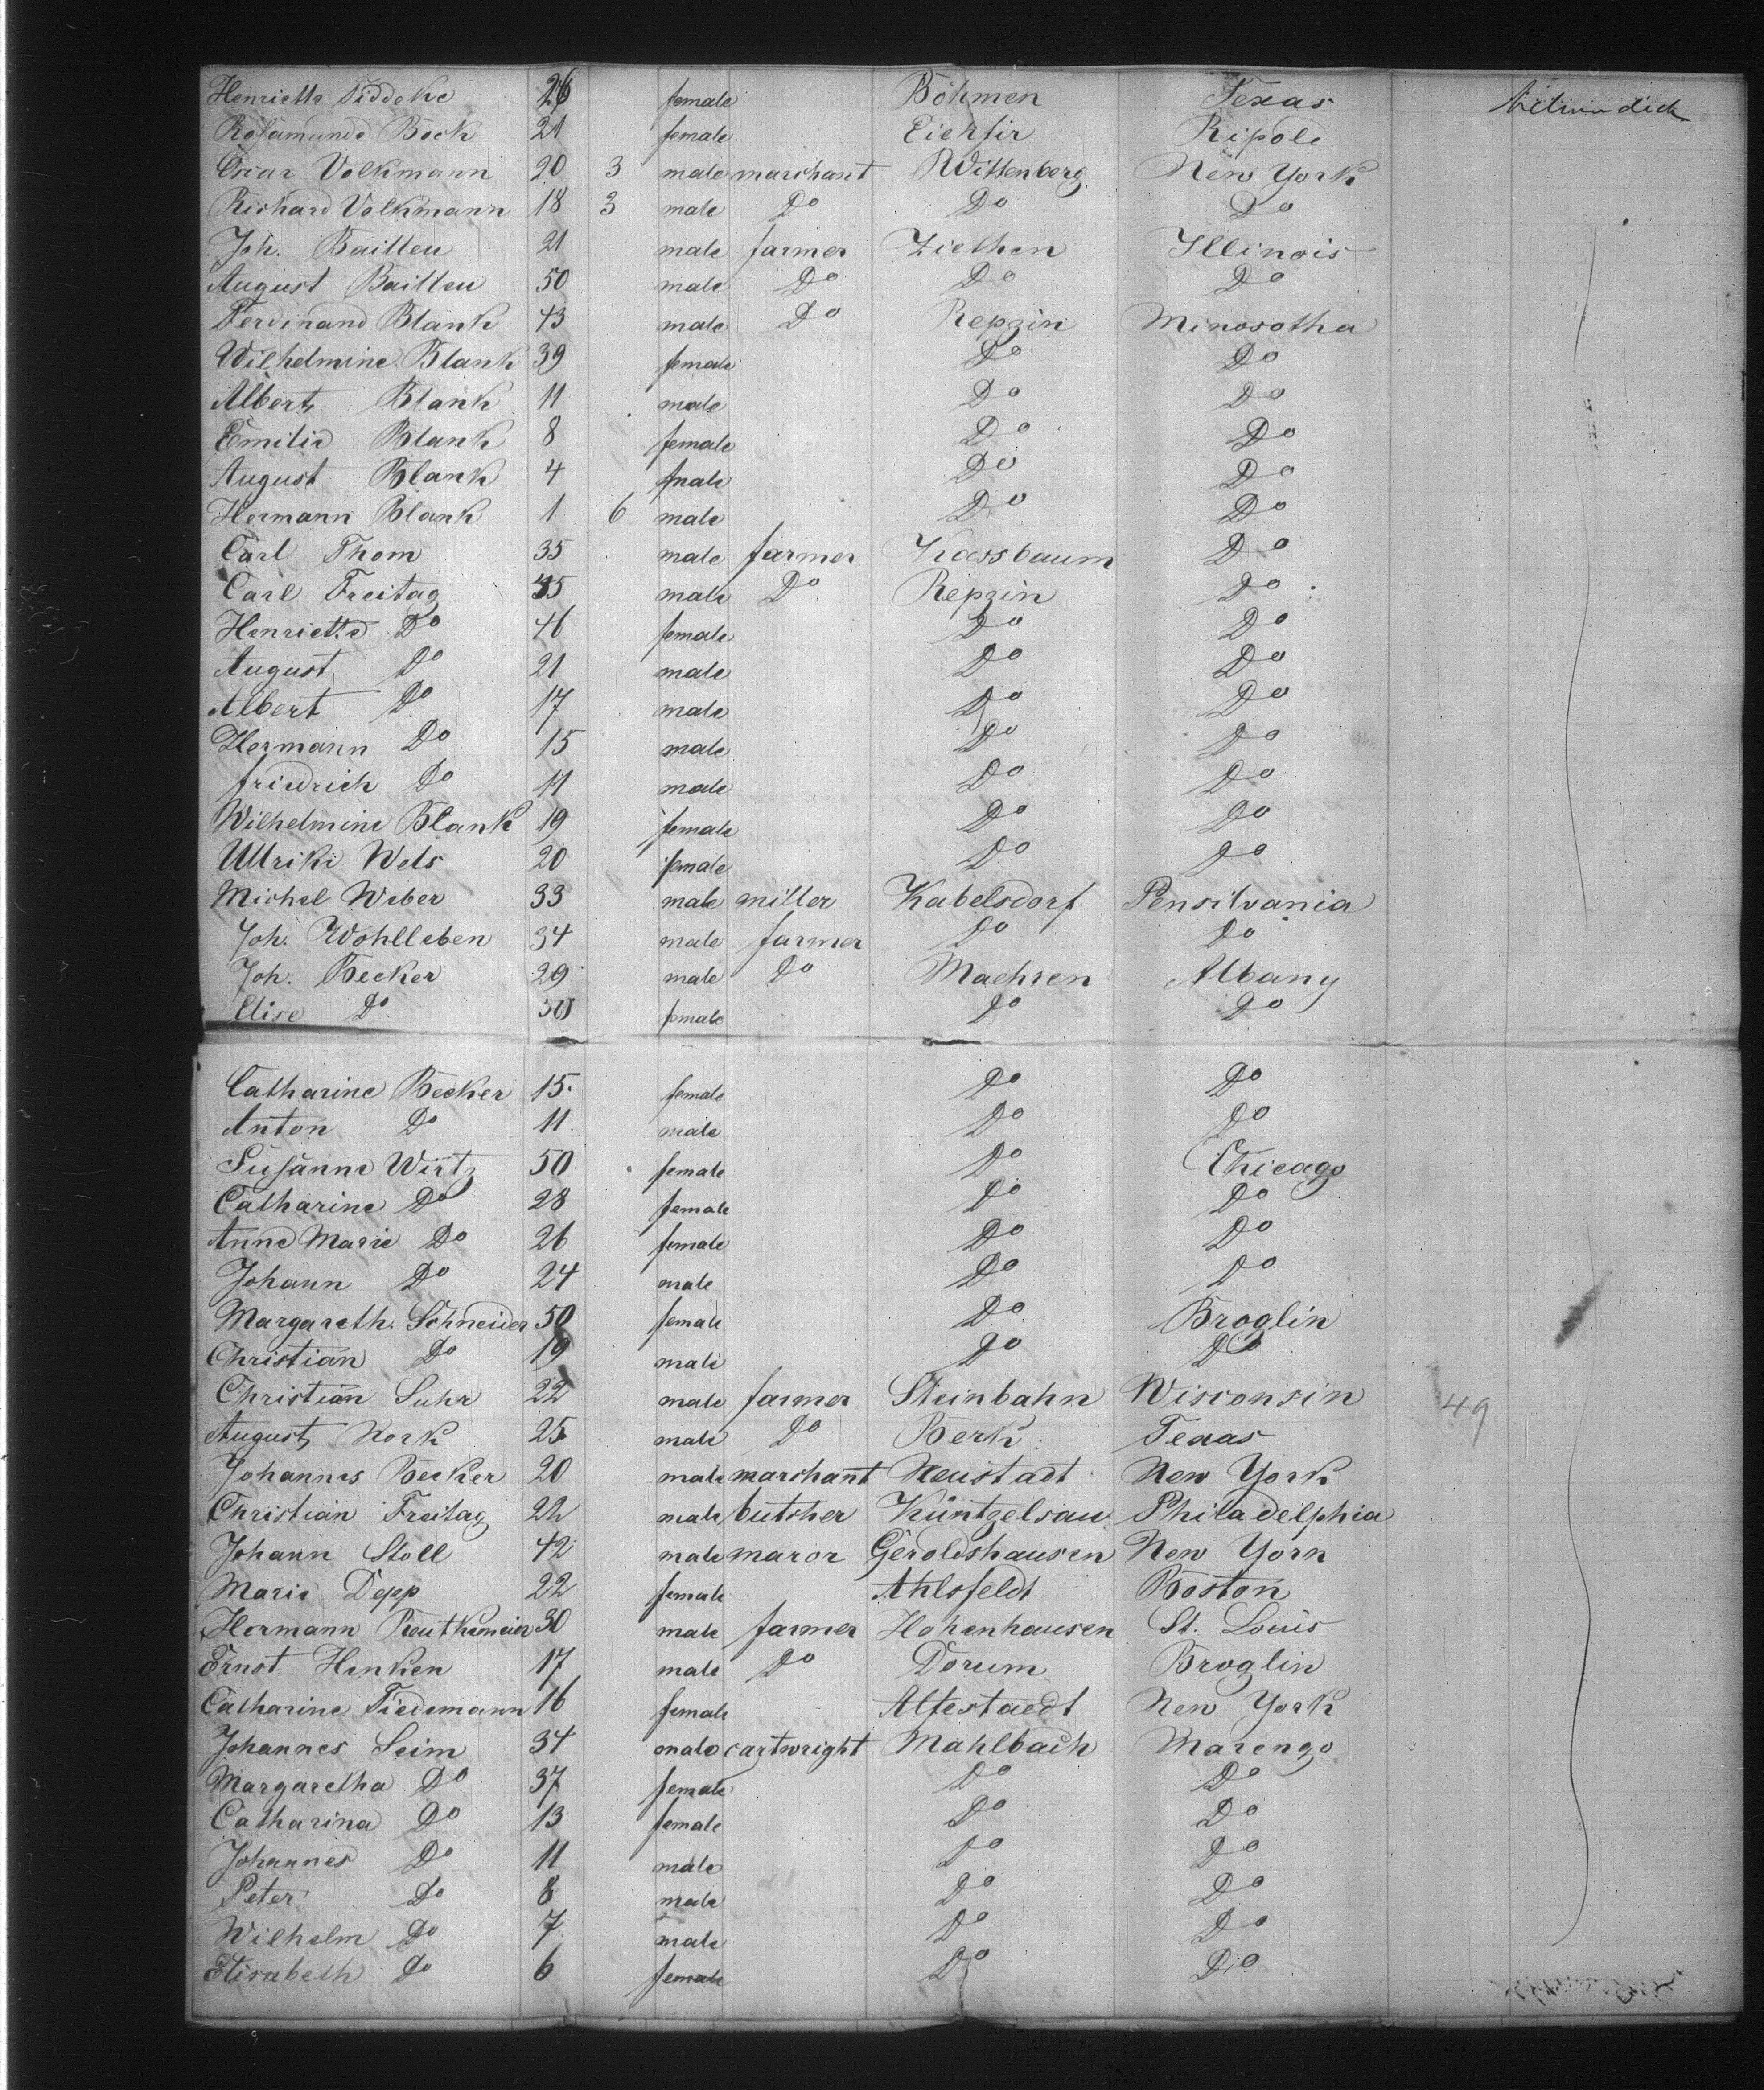 Henrietta Tiddeke 26 female Böhmen Texas
Rosamunde Bock 21 female Eichfir Ripole
Oscar Volkmann 20 3 male marschant Wittenberg New York
Richard Volkmann 18 3 male Do Do Do
Joh. Bailleu 21 male farmer Ziethen Illinois
August Bailleu 50 male Do Do Do
Ferdinand Blank 43 male Do Repzin Minosotha
Wilhelmine Blank 39 female Do Do
Albert Blank 11 male Do Do
Emilie Blank 8 female Do Do
August Blank 4 male Do Do
Hermann Blank 1 6 male Do Do
Carl Thom 35 male farmer Kassbaum Do
Carl Freitag 45 male Do Repzin Do
Henriette Do 46 female Do Do
August Do 21 male Do Do
Albert Do 17 male Do Do
Hermann Do 15 male Do Do
friedrich Do 11 male Do Do
Wilhelmine Blank 19 female Do Do
Ullrike Wels 20 female Do Do
Michel Weber 33 male miller Kabelsdorf Pensilvania
Joh. Wohlleben 34 male farmer Do Do
Joh. Becker 29 male Do Maehren Albany
Elise Do 50 female Do Do
Catharine Becker 15 female Do Do
Anton Do 11 male Do Do
Susanne Wirtz 50 female Do Chicago
Catharine Do 28 female Do Do
Anne Marie Do 26 female Do Do
Johann Do 24 male Do Do
Margareth. Schneider 50 female Do Broglin
Christian Do 19 male Do Do
Christian Suhr 22 male farmer Steinbahn Wisconsin 49
August Nork 25 male Do Berk Texas
Johannes Becker 20 male marschant Neustadt New York
Christian Freitag 22 male butscher Küntzelsau Philadelphia
Johann Stoll 42 male maror Geroldshausen New York
Marie Depp 22 female Ahlsfeldt Boston
Hermann Reutkemeier 30 male farmer Hohenhausen St. Louis
Ernst Henken 17 male Do Dorum Broglin
Catharine Tiedemann 16 female Altestaedt New York
Johannes Seim 34 male cartwright Mahlbach Marengo
Margaretha Do 37 female Do Do
Catharina Do 13 female Do Do
Johannes Do 11 male Do Do
Peter Do 8 male Do Do
Wilhelm Do 7 male Do Do
Elisabeth Do 6 female Do Do